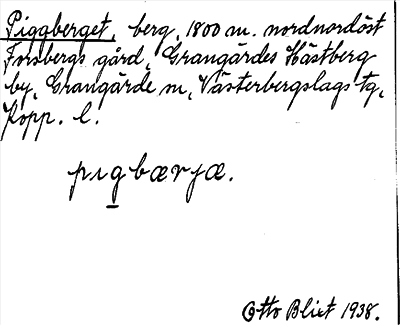 Piggberget, berg, 1800 m. nordnordöst
Forsbergs gård, Grangärdes Hästberg
by, Grangärde sn, Västerbergslags tg,
Kopp. l.
pıgbærjæ.
Otto Blixt 1938.